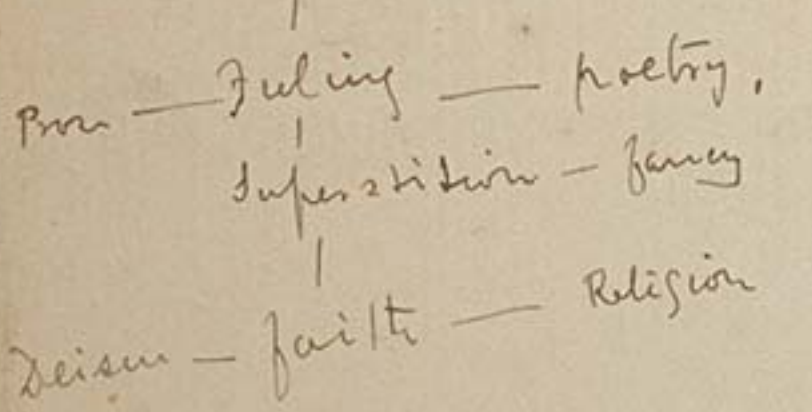 Feeling — poetry.
Superstition — fancy
Deism — faith — Religion